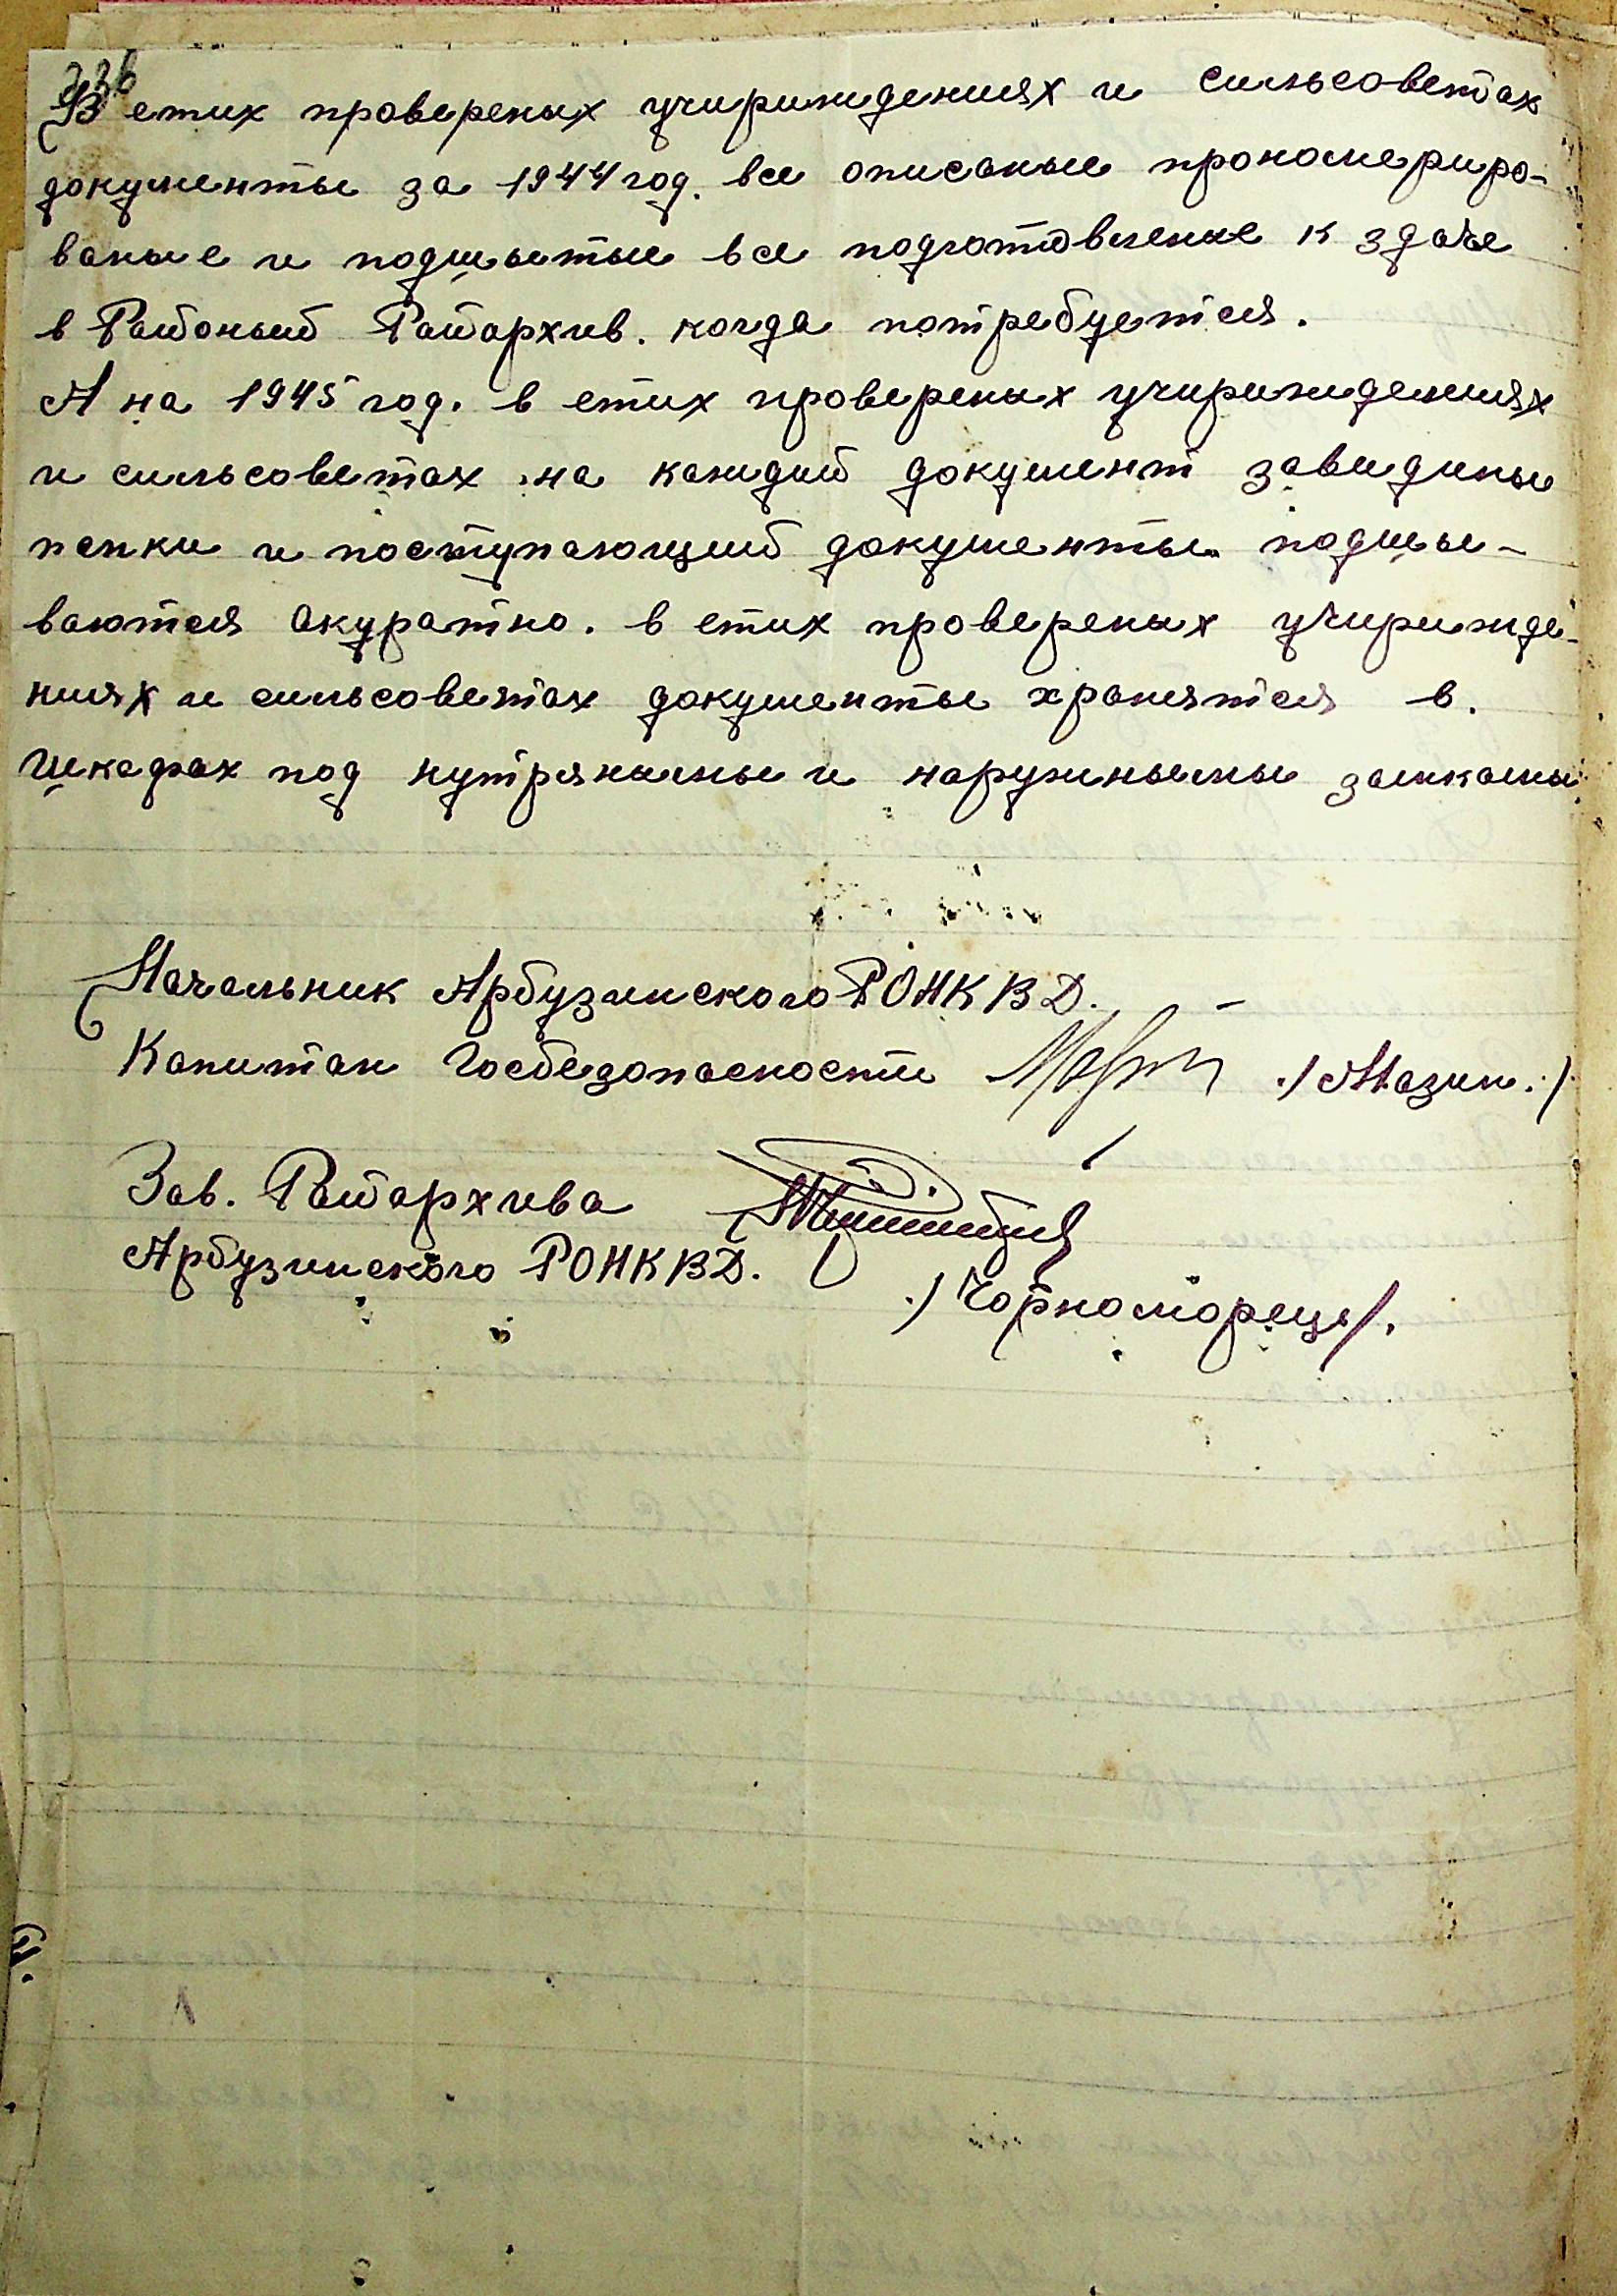 В етих провереных учириждениях и сильсоветах
документы за 1944 год. все описаные прономериро-
ваные и подшытые все подготовленые к здаче
в Районый Райархив. когда потребуется.
А на 1945 год. в етих провереных учириждениях
и сильсоветах на каждый документ завидины
папки и поступающий документы подшы-
ваются акуратно. в етих провереных учирижде-
ниях и сильсоветах документы хранятся в.
шкафах под нутряными и наружными замками.
Начальник Арбузинского РОНКВД.
Капитан Госбезопасности ./Мазин./
Зав. Райархива
Арбузинского РОНКВД.
./Чорноморец/.